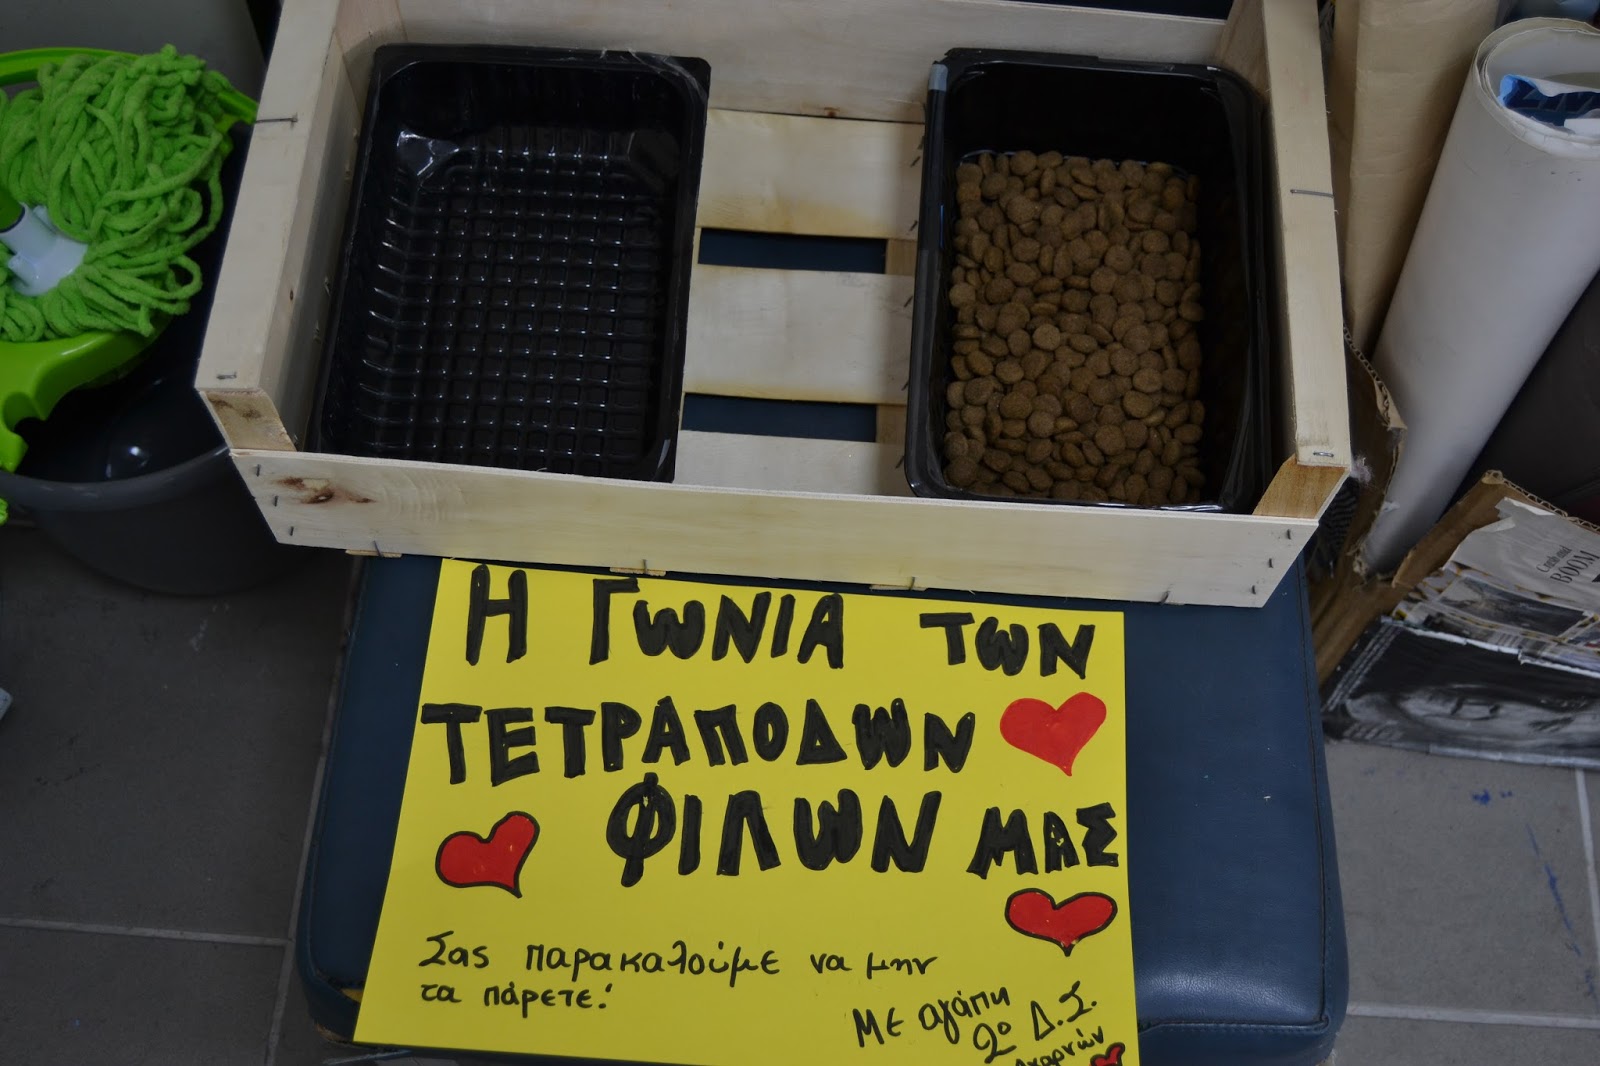 Η ΓΩΝΙΑ ΤΩΝ
ΤΕΤΡΑΠΟΔΩΝ
ΦΙΛΩΝ ΜΑΣ
Σας παρακαλούμε να μην
τα πάρετε!
Με αγάπη
2ο Δ.Σ.
Αχαρνών
BOOM